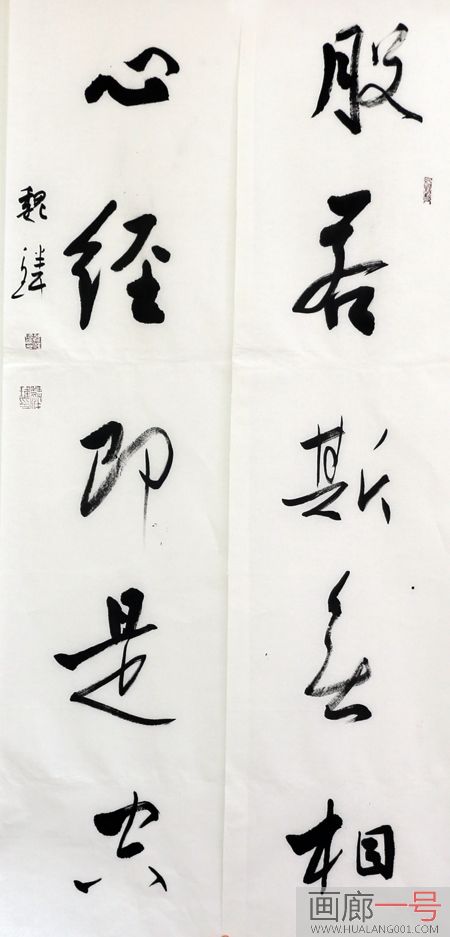 般若斯無相
心经即是空
魏
画廊一号
WWW.HUALANG001.COM